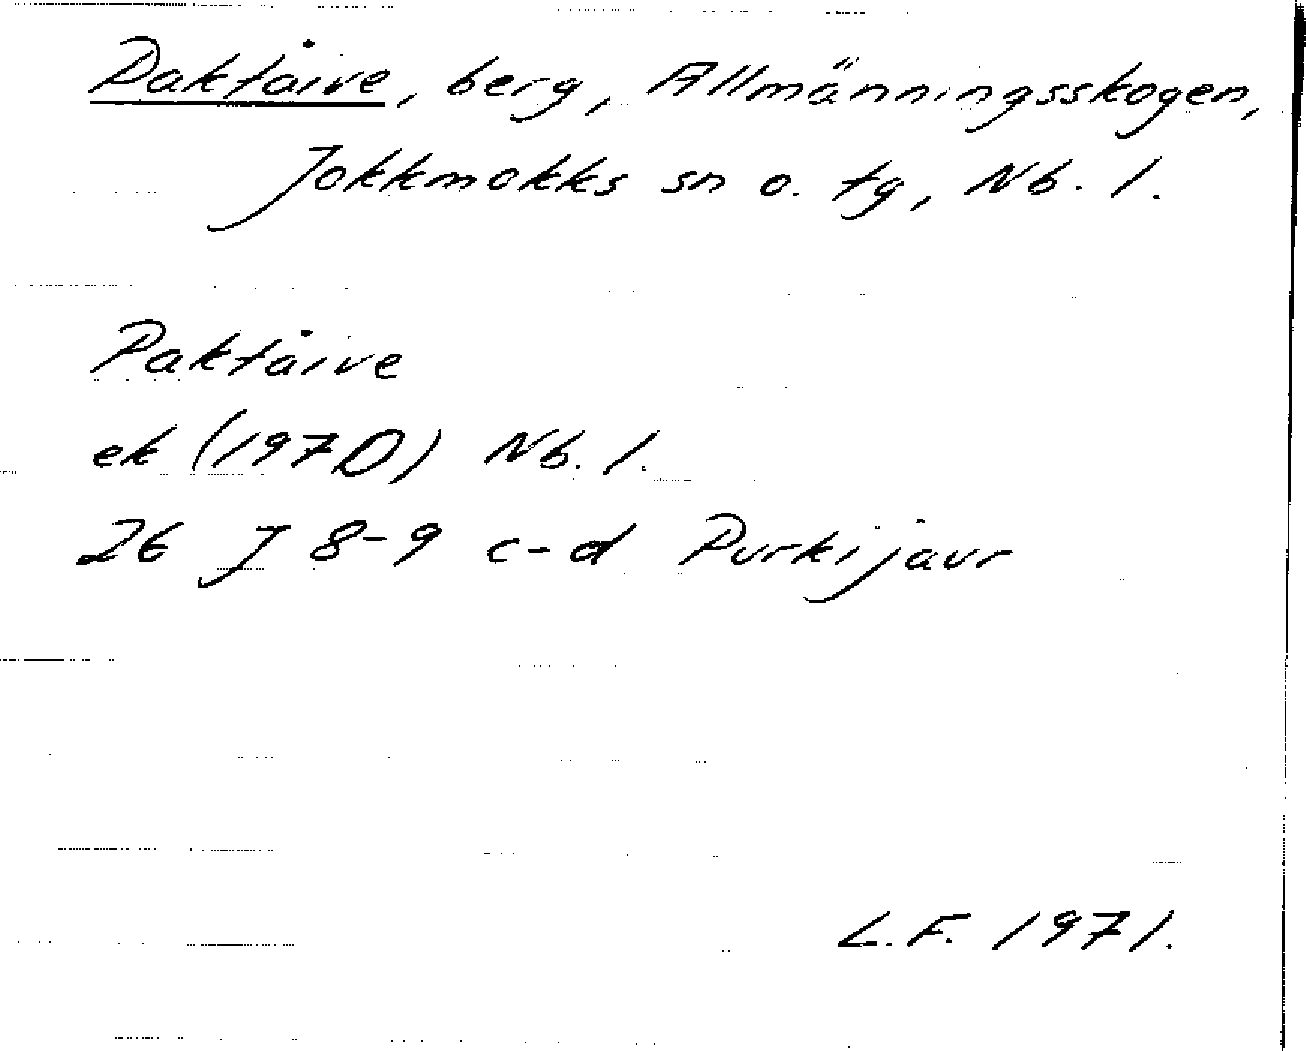 Paktåive, berg, Allmänningsskogen,
Jokkmokks sn o. tg, Nb. l.
Paktåive
ek (1970) Nb. l.
26 J 8-9 c-d Purkijaur
L.F. 1971.